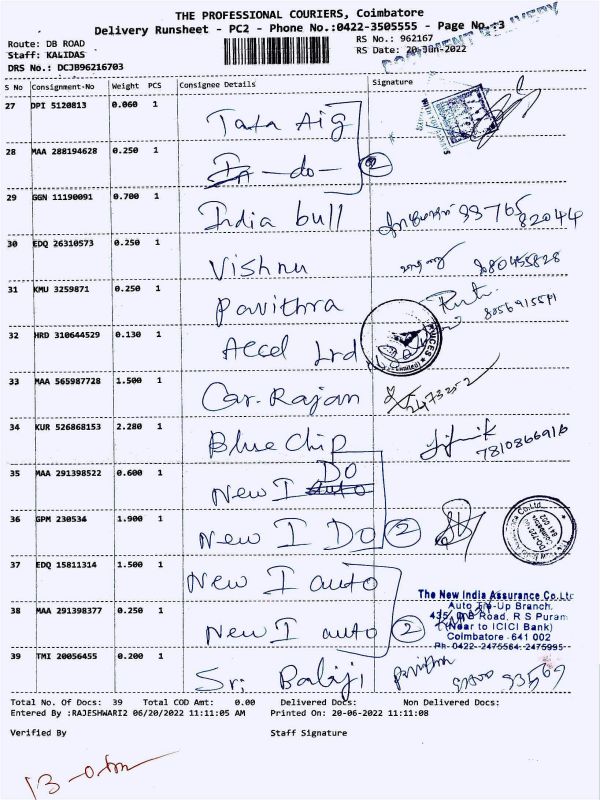 THE PROFESSIONAL COURIERS, Coimbatore
Delivery Runsheet - PC2 - Phone No.:0422-3505555 - Page No.:3
Route: DB ROAD
RS No.: 962167
Staff: KALIDAS
RS Date: 20-Jun-2022
DRS No.: DCJB96216703
S No Consignment-No Weight PCS Consignee Details Signature
27 DPI 5120813 0.060 1 Tata Aig
28 MAA 288194628 0.250 1 -do- 2
29 GGN 11190091 0.700 1 India bull
30 EDQ 26310573 0.250 1 Vishnu
31 KMU 3259871 0.250 1 Pavithra 8056915571
32 HRD 310644529 0.130 1 Accel Ltd
33 MAA 565987728 1.500 1 Car. Rajan
34 KUR 526868153 2.280 1 Blue Chip
35 MAA 291398522 0.600 1 New I DO
36 GPM 230534 1.900 1 New I DO 2
37 EDQ 15811314 1.500 1 New I auto
38 MAA 291398377 0.250 1 New I auto 2
The New India Assurance Co.Ltd
Auto Tie-Up Branch.
435, D B Road, R S Puram
(Near to ICICI Bank)
Coimbatore - 641 002
Ph- 0422- 2475564, 2475995
39 TMI 20056455 0.200 1 Sri Balaji Pavithra
Total No. Of Docs: 39 Total COD Amt: 0.00 Delivered Docs: Non Delivered Docs:
Entered By :RAJESHWARI2 06/20/2022 11:11:05 AM Printed On: 20-06-2022 11:11:08
Verified By Staff Signature